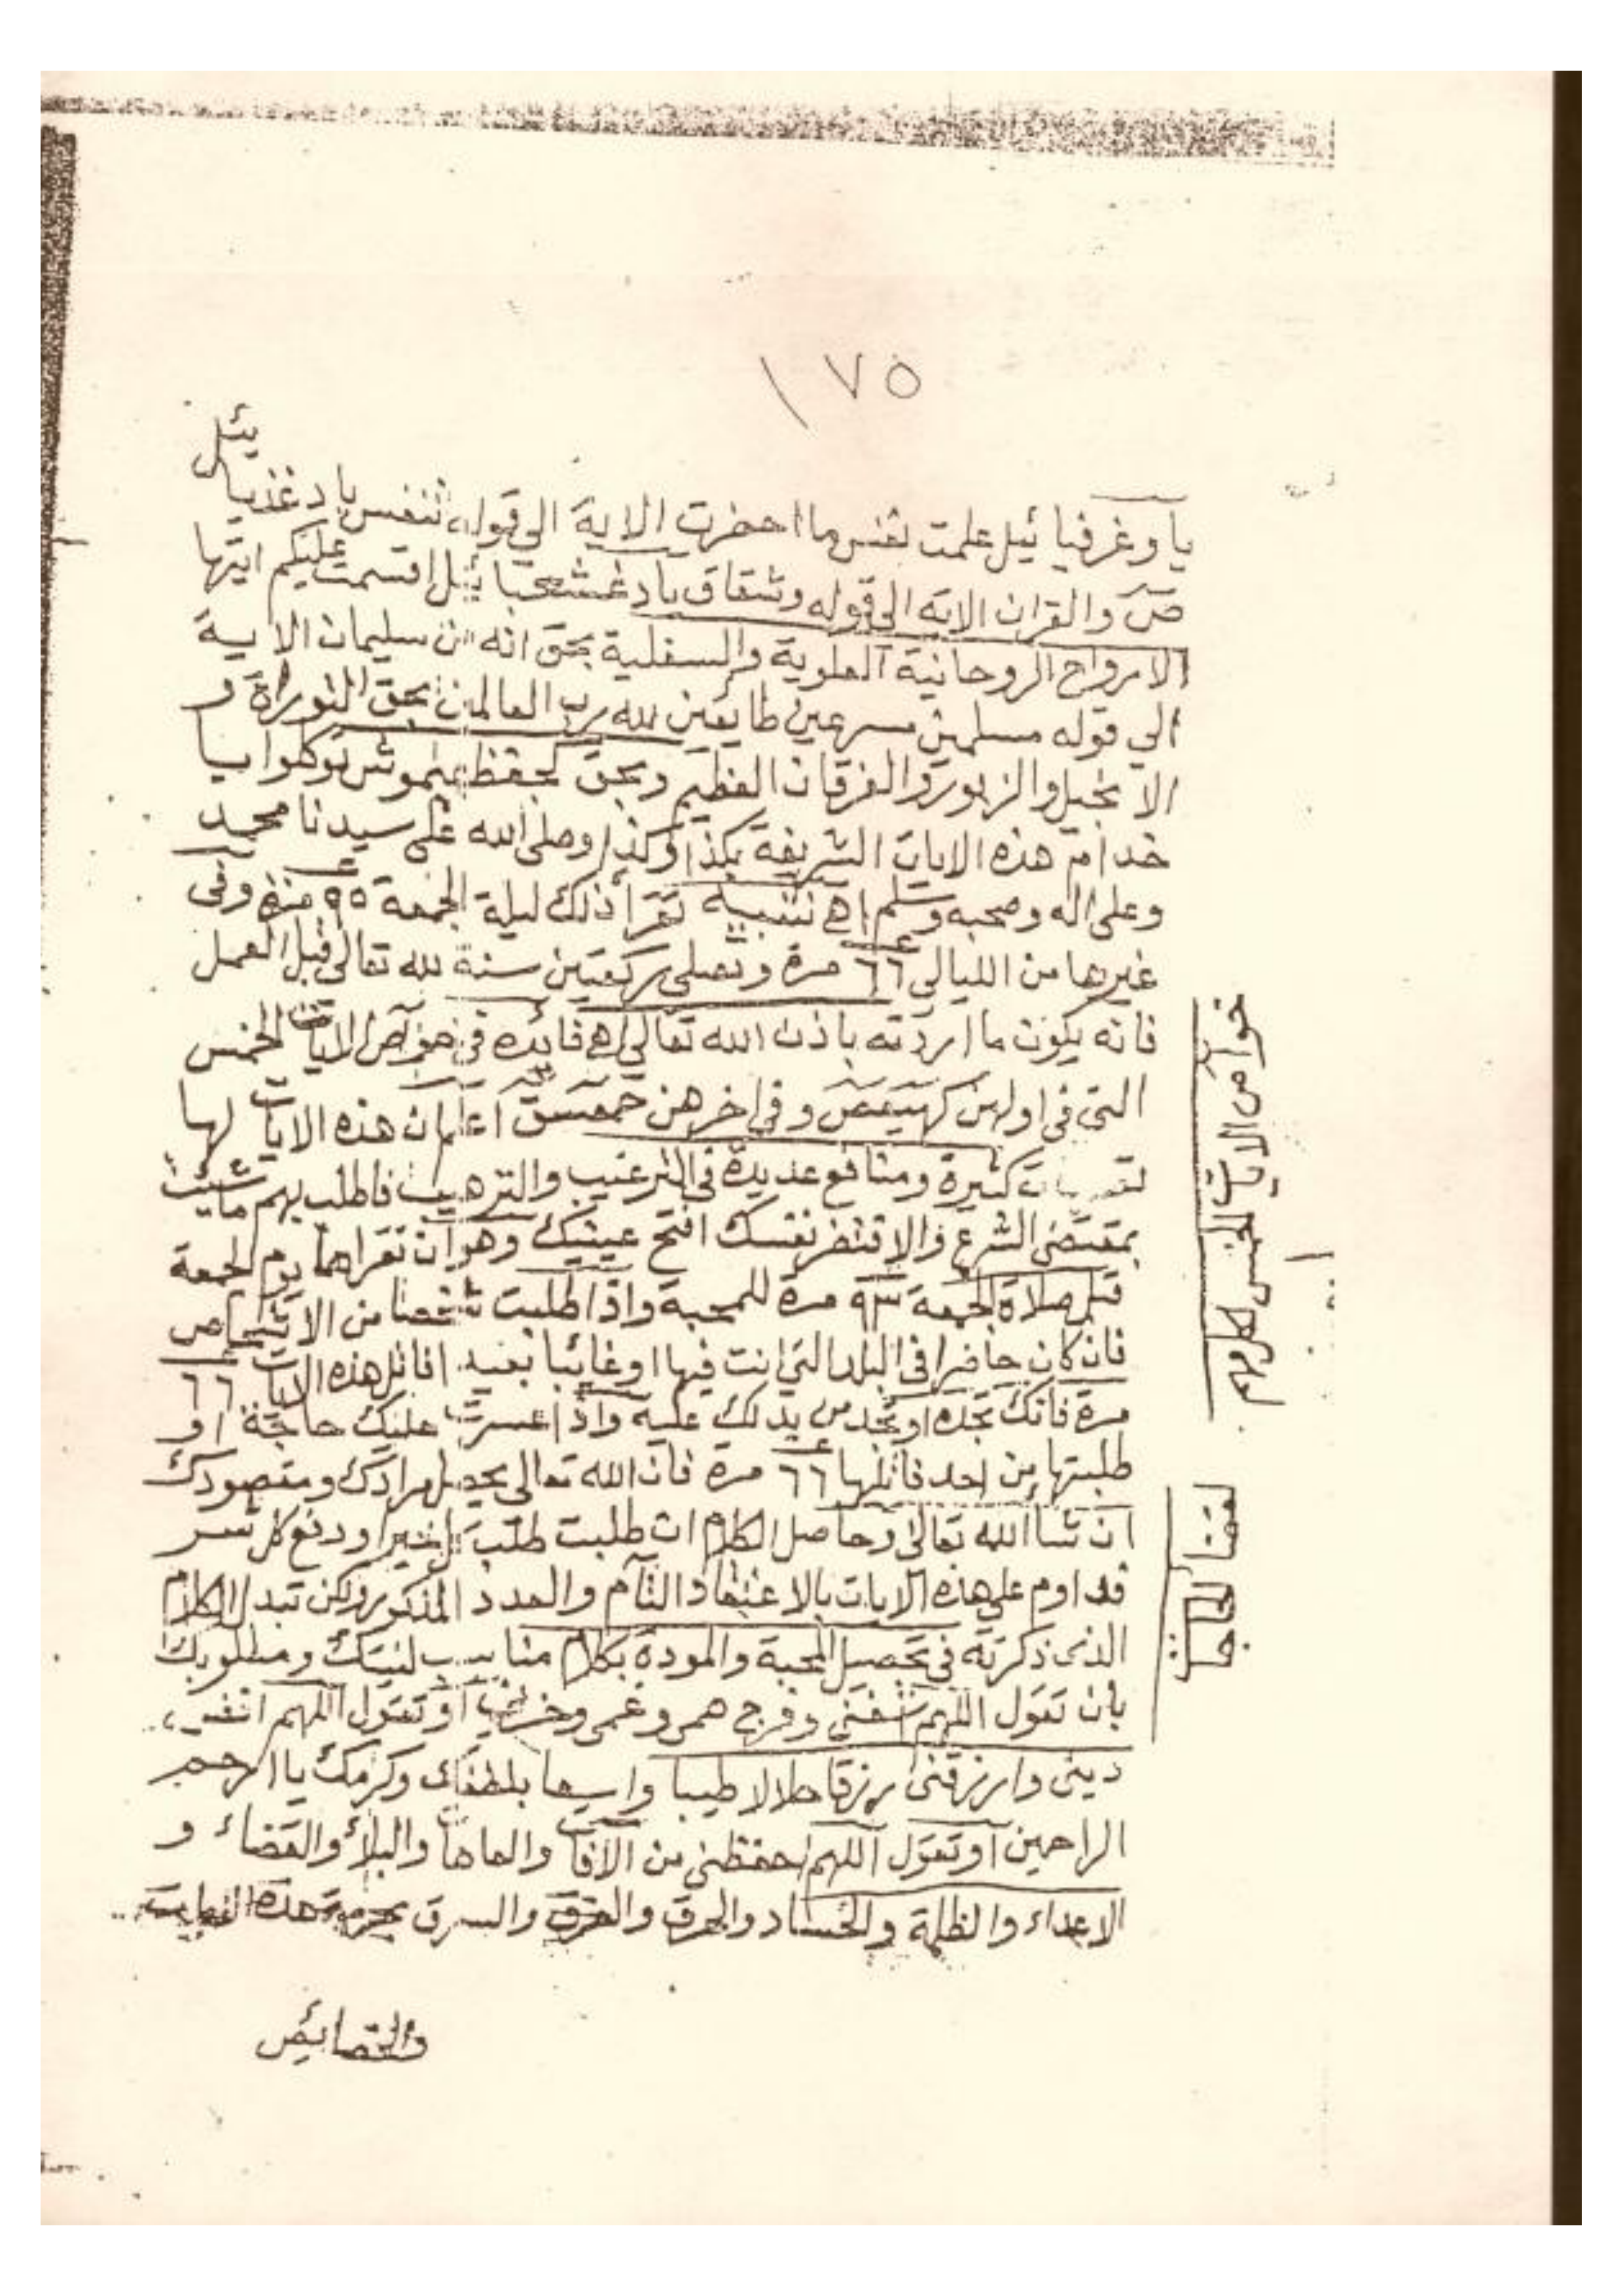 ١٧٥
يا وغرفيائيل علمت نفس ما احضرت الاية الى قوله تنفس يا دغذيائيل
ص والقران الاية الى قوله وشقاق يا اقسمت عليكم ايتها
الارواح الروحانية العلوية والسفلية بحق انه من سليمان الاية
الي قوله مسلمين مسرعين طايعين لله رب العالمين بحق التوراة و
الانجيل والزبور والفرقان العظيم وبحق توكلوا يا
خدام هذه الايات الشريفة بكذا وكذا وصلى الله على سيدنا محمد
وعلى اله وصحبه وسلم اهـ تنبيه تقرأ ذلك ليلة الجمعة ٩٥ مرة وفى
غيرها من الليالى ٦٦ مرة وتصلى ركعتين سنة لله تعالى قبل العمل
فانه يكون ما اردته باذن الله تعالى اهـ فائده فى خواص الايات الخمس
التى فى اولهن كهيعص وفى اخرهن حمعسق اعلم ان هذه الايات لها
كثيرة ومنافع عديدة فى الترغيب والترهيب فاطلب بهم ما شيئت
بمقتضى الشرع والا فتضر نفسك افتح عينيك وهو ان تقراهما يوم الجمعة
قبل صلاة الجمعة ٩٣ مرة للمحبة واذا طلبت شخصا من الاشخاص
فان كان حاضرا فى البلد التى انت فيها او غائبا بعيد فاتل هذه الايات ٦٦
مرة فانك تجده او تجد من يدلك عليه واذا عسرت عليك حاجة او
طلبتها من احد فاتلها ٦٦ مرة فان الله تعالى يحصل مرادك ومقصودك
ان شا الله تعالى وحاصل الكلام ان طلبت طلب خيرا ودفع كل شر
فداوم على هذه الايات بالاعتقاد التام والعدد المذكور ولكن تبدل الكلام
الذى ذكرته فى تحصيل المحبة والمودة بكلام مناسب لنيتك ومطلوبك
بان تقول اللهم وفرج همى وغمى او تقول اللهم اقض
دينى وارزقنى رزقا حلالا طيبا واسعا بلطفك وكرمك يا ارحم
الراحمين او تقول اللهم احفظنى من الآفات والعاهات والبلاء والقضاء و
الاعداء والظلمة والحساد والحرق والغرق والسرق بحرمة هذه
والخصائص
خواص الايات الخمس
لقضاء الحاجة